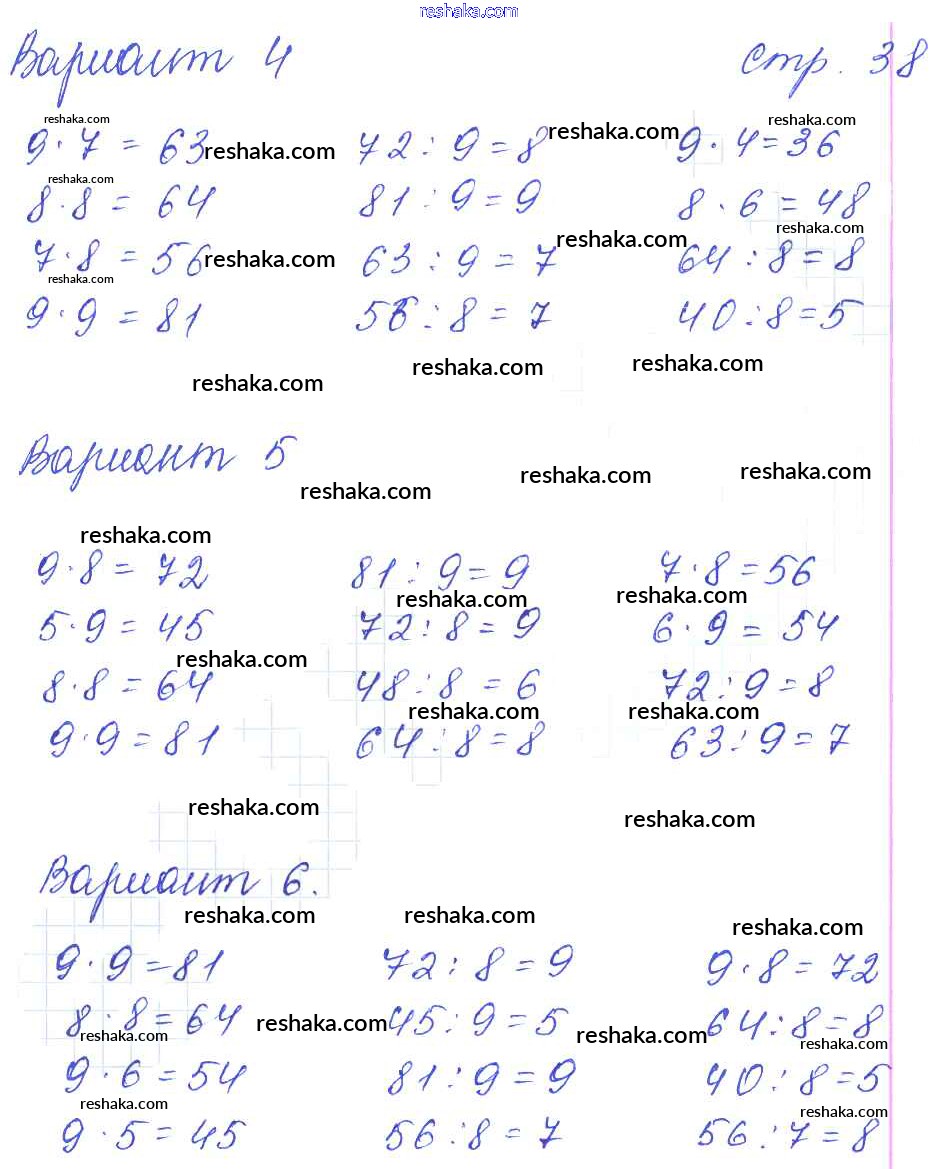 reshaka.com
Вариант 4 Стр. 38
reshaka.com reshaka.com
9·7 = 63 reshaka.com 72 : 9 = 8 reshaka.com 9·4=36
reshaka.com
8·8 = 64 81 : 9 = 9 8·6 = 48
reshaka.com reshaka.com
7·8 = 56 reshaka.com 63 : 9 = 7 64 : 8 = 8
reshaka.com
9·9 = 81 56 : 8 = 7 40 : 8 = 5
reshaka.com reshaka.com reshaka.com
Вариант 5
reshaka.com reshaka.com reshaka.com
reshaka.com
9·8 = 72 81 : 9 = 9 7·8 = 56
reshaka.com reshaka.com
5·9 = 45 72 : 8 = 9 6·9 = 54
reshaka.com
8·8 = 64 48 : 8 = 6 72 : 9 = 8
reshaka.com reshaka.com
9·9 = 81 64 : 8 = 8 63 : 9 = 7
reshaka.com reshaka.com
Вариант 6.
reshaka.com reshaka.com reshaka.com
9·9 = 81 72 : 8 = 9 9·8 = 72
8·8 = 64 reshaka.com 45 : 9 = 5 reshaka.com 64 : 8 = 8
reshaka.com reshaka.com
9·6 = 54 81 : 9 = 9 40 : 8 = 5
reshaka.com reshaka.com
9·5 = 45 56 : 8 = 7 56 : 7 = 8